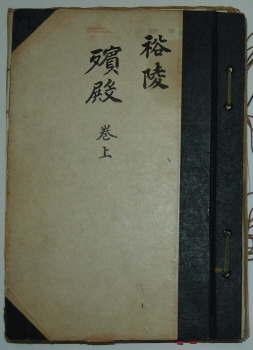 裕陵
殯殿
卷上